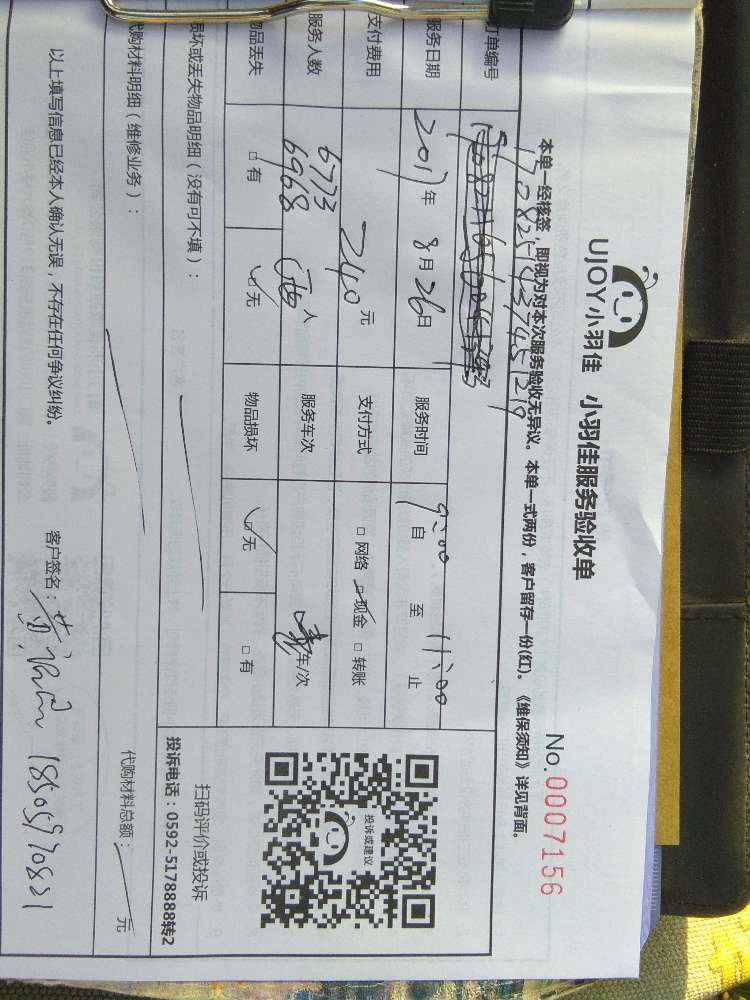 UJOY小羽佳 小羽佳服务验收单
No.0007156
本单一经核签，即视为对本次服务验收无异议。本单一式两份，客户留存一份(红)。《维保须知》详见背面。
订单编号
服务日期 2017年 8月 26日 服务时间 9:00 自 至 11:00 止
支付费用 240元 支付方式 □ 网络 □现金 □ 转账
服务人数 6773 6968 两人 服务车次 车/次
物品丢失 □ 有 □无 物品损坏 □无 □ 有
损坏或丢失物品明细（没有可不填）：
投诉或建议
扫码评价或投诉
投诉电话：0592-5178888转2
代购材料明细（维修业务）：
代购材料总额： 元
以上填写信息已经本人确认无误，不存在任何争议纠纷。 客户签名： 18505970821